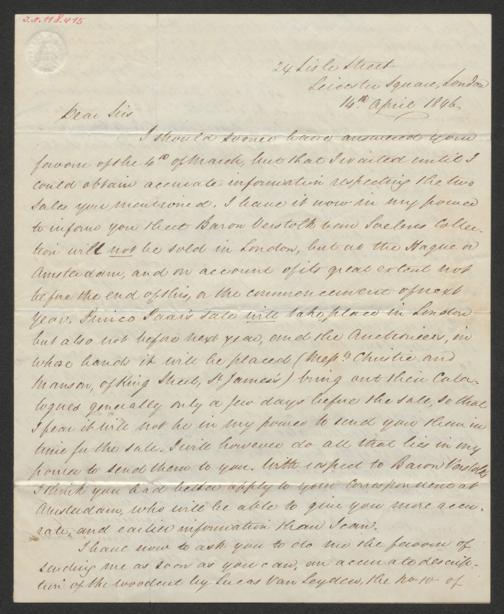 24 Lisle Street
Leicester Square, London
14th April 1846
Dear Sir
I should sooner have answered your
favour of the 4th of March, but that I waited until I
could obtain accurate information respecting the two
sales you mentioned. I have it now in my power
to inform you that Baron Verstolk van Soelens Collec-
tion will not be sold in London, but at the Hague or
Amsterdam, and on account of its great extent not
before the end of this, or the commencement of next
year. Sale will take place in London
but also not before next year, and the Auctioneers, in
whose hand it will be placed (Messrs Christie and
Manson, of King Street, St James's) bring out their Cata-
logues generally only a few days before the sale, so that
I fear it will not be in my power to send you them in
time for the sale. I will however do all that lies in my
power to send them to you. With respect to Baron Verstolks
I think you had better apply to your Correspondent at
Amsterdam, who will be able to give you more accu-
rate, and earlier information than I can.
I have now to ask you to do me the favour of
sending me as soon as you can, an accurate descrip-
tion of the woodcut by Lucas Van Leyden, the No of